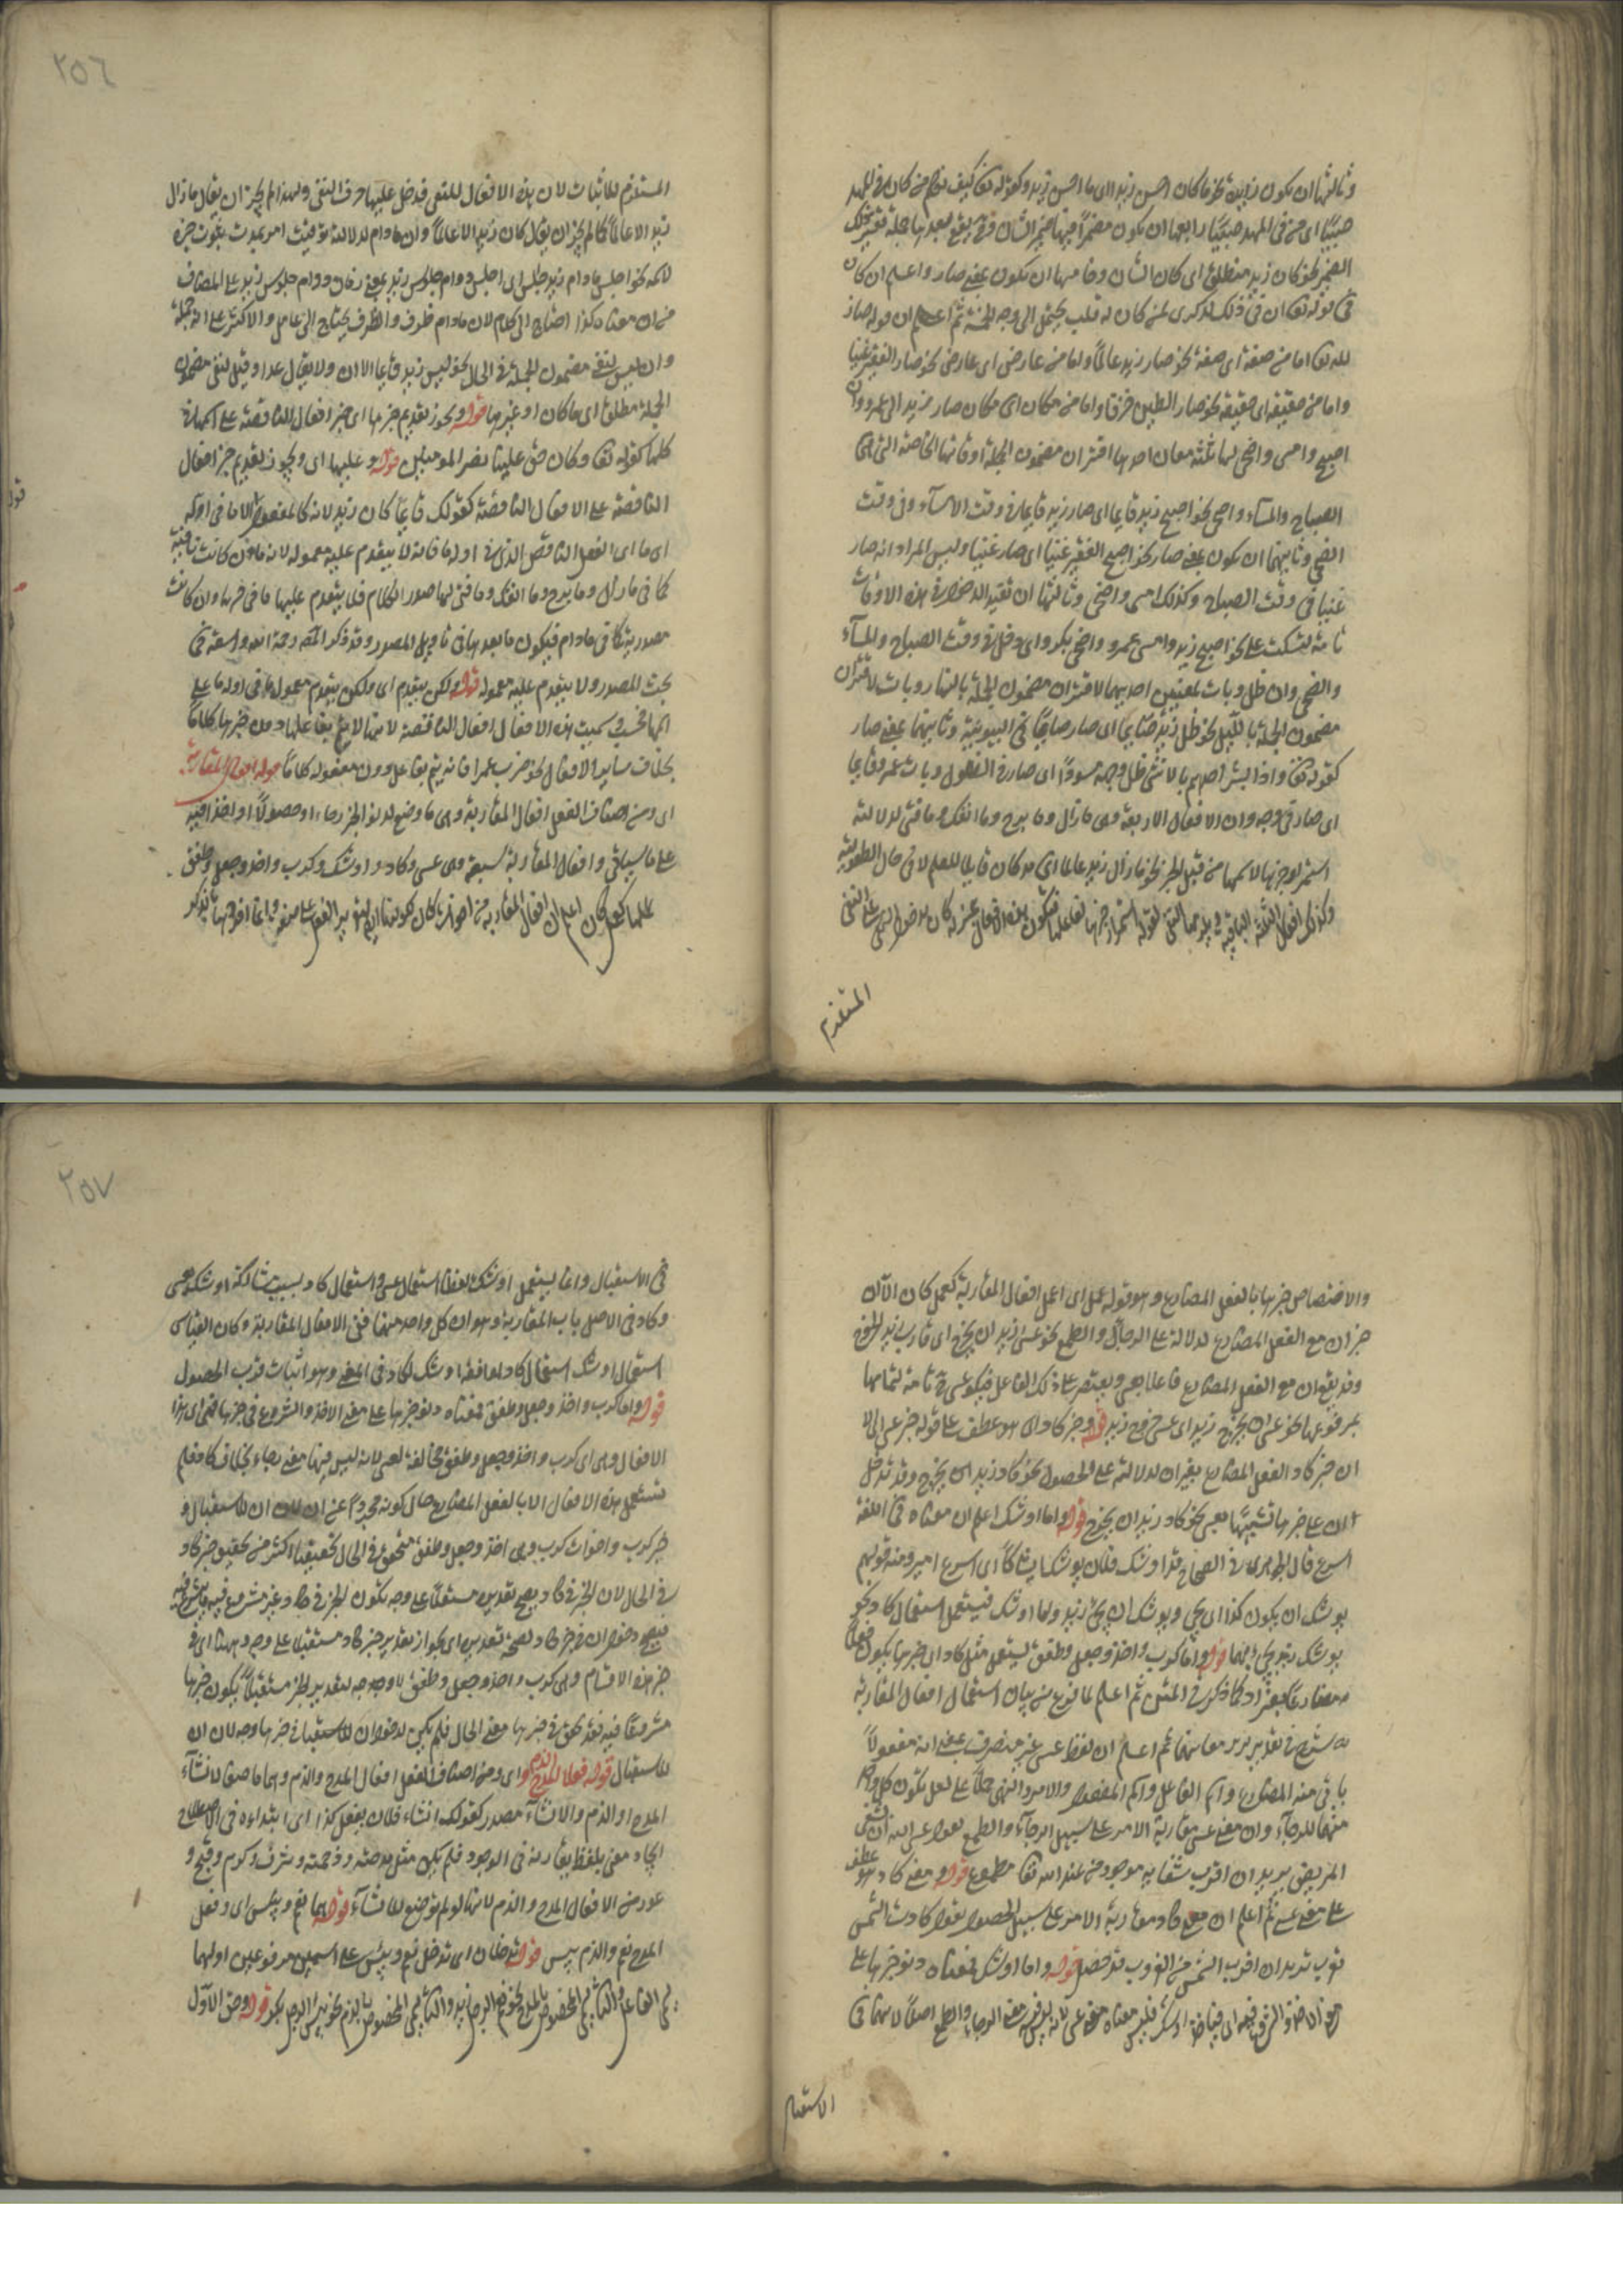 وثالثها ان يكون زايدة نحو ما كان احسن زيدا اى ما احسن زيد وكقوله تعا كيف نكلم من كان فى المهد
صبيا اى من فى المهد صبيا رابعها ان يكون مضمرا فيها ضمير الشان فح يقع بعدها جملة تفسر ذلك
الضمير نحو كان زيد منطلق اى كان الشان وخامسها ان يكون بمعنى صار واعلم ان كان
فى قوله تعا ان فى ذلك لذكرى لمن كان له قلب يحتمل الوجه الخمسة ثم اعلم ان قوله صار
اما من صفة اى صفة نحو صار زيد عالما واما من عارض اى عارض نحو صار الفقير غنيا
واما من حقيقة اى حقيقة نحو صار الطين خزفا واما من مكان اى مكان صار زيد الى عمرو وان
اصبح وامسى واضحى لها ثلثة معان احدها اقتران مضمون الجملة اوقاتها الخاصة التى هى
الصباح والمساء واضحى نحو اصبح زيد قايما اى صار زيد قايما فى وقت الامساء وفى وقت
الضحى وثانيهما ان يكون بمعنى صار نحو اصبح الفقير غنيا اى صار غنيا وليس المراد انه صار
غنيا فى وقت الصباح وكذلك امسى واضحى وثالثها ان تفيد الدخول فى هذه الاوقات
تامة تسكت على نحو اصبح زيد وامسى عمرو واضحى بكر اى دخل فى وقت الصباح والمساء
والضحى وان ظل وبات لمعنيين احديهما لاقتران مضمون الجملة بالنهار وبات لاقتران
مضمون الجملة بالليل نحو ظل زيد صايما اى صار صايما فى البيوتتة وثانيهما بمعنى صار
كقوله تعا واذا بشر احدهم بالانثى ظل وجهه مسودا اى صار فى الظلول وبات عمرو قايما
اى صار فى وجه وان الافعال الاربعة وهى مازال وما برح وما انفك وما فتئ لدلالة
استمرار خبرها لاسمها من قبل نحو ما زال زيد عالما اى مذ كان قابلا للعلم لا فى حال الطفولية
وكذلك افعال الثلثة الباقية ويلزمها النفى
المستلزم
٢٥٦
المستلزم للاثبات لان هذه الافعال للنفى فدخل عليها حرف النفى ولهذا لم يجز ان يقال ما زال
زيد الا عالما كما لم يجز ان يقال كان زيد الا عالما وان مادام لدلالة توقيت امر بمدت ثبوت خبره
لاسمه نحو اجلس مادام زيد جالس اى اجلس دوام جلوس زيد بمعنى زمان دوام جلوس زيد على المضاف
من ان معناه كذا احتاج الى كلام لان مادام ظرف والظرف يحتاج الى عامل والاكثر على انه جملة
وان ليس لنفى مضمون الجملة فى الحال نحو ليس زيد قايما الان ولا يقال غدا وقيل لنفى مضمون
الجملة مطلقا اى ما كان او غيرها قوله ويجوز تقديم خبرها اى خبر افعال الناقصة على اسمها فى
كلها كقوله تعا وكان حق علينا نصر المومنين قوله وعليها اى ويجوز تقديم خبر افعال
الناقصة على الافعال الناقصة كقولك قايما كان زيد لانه كالمفعول الا ما فى اوله
اى ما اى الفعل الناقص الذى فى اوله ما فانه لا يتقدم عليه معموله لانه ما ان كانت نافية
كما فى مازال وما برح وما انفك وما فتئ لها صدر الكلام فلا يتقدم عليها ما فى خبرها وان كانت
مصدرية كما فى مادام فيكون ما بعدها فى تاويل المصدر وقد ذكر المص رحمة الله واسعة فى
بحث المصدر ولا يتقدم عليه معموله قوله ولكن يتقدم اى ولكن يتقدم معمول ما فى اوله ما على
اسمها فحسب وسميت هذه الافعال افعال الناقصة لانها لا يتم بفاعلها دون خبرها كلاما
بخلاف ساير الافعال نحو ضرب عمرا فانه يتم بفاعل دون مفعوله كلاما قوله افعال المقاربة
اى ومن اصناف الفعل افعال المقاربة وهى ما وضع لدنو الخبر رجاء او حصولا او اخذا فيه
على ما سياتى وافعال المقاربة سبعة وهى عسى وكاد واوشك وكرب واخذ وجعل وطفق
عملها كعمل كان اعلم ان افعال المقاربة من اخوات كان
والاختصاص خبرها بالفعل المضارع وهو قوله عمل اى اعمل افعال المقاربة كعمل كان الا ان
خبر ان مع الفعل المضارع لدلالة على الرجاء والطمع نحو عسى زيد ان يخرج اى قارب زيد الخروج
وقد يقع ان مع الفعل المضارع فاعلا لعسى ويقتصر على ذلك الفاعل فيكون عسى ح تامة لتمامها
بمرفوعها نحو عسى ان يخرج زيد اى عسى خروج زيد قوله وخبر كاد اى هو عطف على قوله خبر عسى اى الا
ان خبر كاد الفعل المضارع بغير ان لدلالته على الحصول نحو كاد زيد يخرج وقد تدخل
ان على خبرها تشبيها بعسى نحو كاد زيد ان يخرج قوله واما اوشك اعلم ان معناه فى اللغة
اسرع قال الجوهرى فى الصحاح قد اوشك فلان يوشك ايشاكا اى اسرع السير ومنه قولهم
يوشك ان يكون كذا اى يجئ ويوشك ان يجئ زيد واما اوشك فيستعمل استعمال كاد نحو
يوشك زيد يجئ قوله واما كرب واخذ وجعل وطفق يستعمل مثل كاد اى خبرها يكون فعلا
مضارعا بغير ان كما ذكر فى المتن ثم اعلم لما فرغ من بيان استعمال افعال المقاربة
شرع فى تقدير معانيها ثم اعلم ان لفظ عسى غير منصرف بمعنى انه مفعولا
ياتى منه المضارع واسم الفاعل واسم المفعول والامر والنهى حملا على لعل لكون كل واحد
منهما للرجاء وان معنى عسى مقاربة الامر على سبيل الرجاء والطمع تقول عسى الله ان يشفى
المريض يريد ان اقرب شفائه موجود من عند الله تعا مطموع قوله ومعنى كاد هو عطف
على معنى عسى ثم اعلم ان معنى كاد مقاربة الامر على سبيل الحصول تقول كادت الشمس
تغرب تريد ان اقرب الشمس من الغروب قد حصل قوله واما اوشك فمعناه دنو خبرها على
معنى الاخذ والشروع فيه
الاستقبال
٢٥٧
فى الاستقبال وانما يستعمل اوشك لفظا استعمال عسى واستعمال كاد بسبب مشاركة اوشك عسى
وكاد فى الاصل باب المقاربة وهو ان كل واحد منهما من الافعال المقاربة وكان القياس
استعمال اوشك استعمال كاد لموافقة اوشك لكاد فى المعنى وهو اثبات قرب الحصول
قوله واما كرب واخذ وجعل وطفق فمعناه دنو خبرها على معنى الاخذ والشروع فى خبرها فمعنى هذا
الافعال وهى اى كرب واخذ وجعل وطفق مخالفة لعسى لانه ليس فيها معنى رجاء بخلاف كاد فلم
تستعمل هذه الافعال الا بالفعل المضارع حال كونه مجردا عن ان لان ان للاستقبال و
خبر كرب واخوات كرب وهى اخذ وجعل وطفق متحقق فى الحال تحقيقا اكثر من تحقيق خبر كاد
فى الحال لان الخبر فى كاد يصح تقديره مستقبلا على وجه يكون الخبر فى كاد غير مشروع فيه
فيصح دخول ان فى خبر كاد لصحة تقديره اى لجواز تقدير خبر كاد مستقبلا على وجه وههنا اى فى
خبر هذه الاقسام وهى كرب واخذ وجعل وطفق لا وجه لتقدير الخبر مستقبلا لكون خبرها
مشروعا فيه فقد تحقق فى خبرها معنى الحال فلم يكن لدخول ان للاستقبال فى خبرها وجه لان ان
للاستقبال قوله فعلا المدح والذم اى ومن اصناف الفعل افعال المدح والذم وهما ما وضعا لانشاء
المدح او الذم والانشاء مصدر كقولك انشاء فلان يفعل كذا اى ابتداءه فى الاصطلاح
ايجاد معنى بلفظ يقارنه فى الوجود فلم يكن مثل مدحته وذممته وشرف وكرم وقبح و
عور من الافعال المدح والذم لانها لم توضع للانشاء قوله هما نعم وبئس اى وفعل
المدح نعم والذم بيس قوله تدخلان اى تدخل نعم وبئس على اسمين مرفوعين اولهما
يسمى الفاعل والثانى يسمى المخصوص بالمدح نحو نعم الرجل زيد والثانى يسمى المخصوص بالذم نحو بئس الرجل بكر قوله وحق الاول